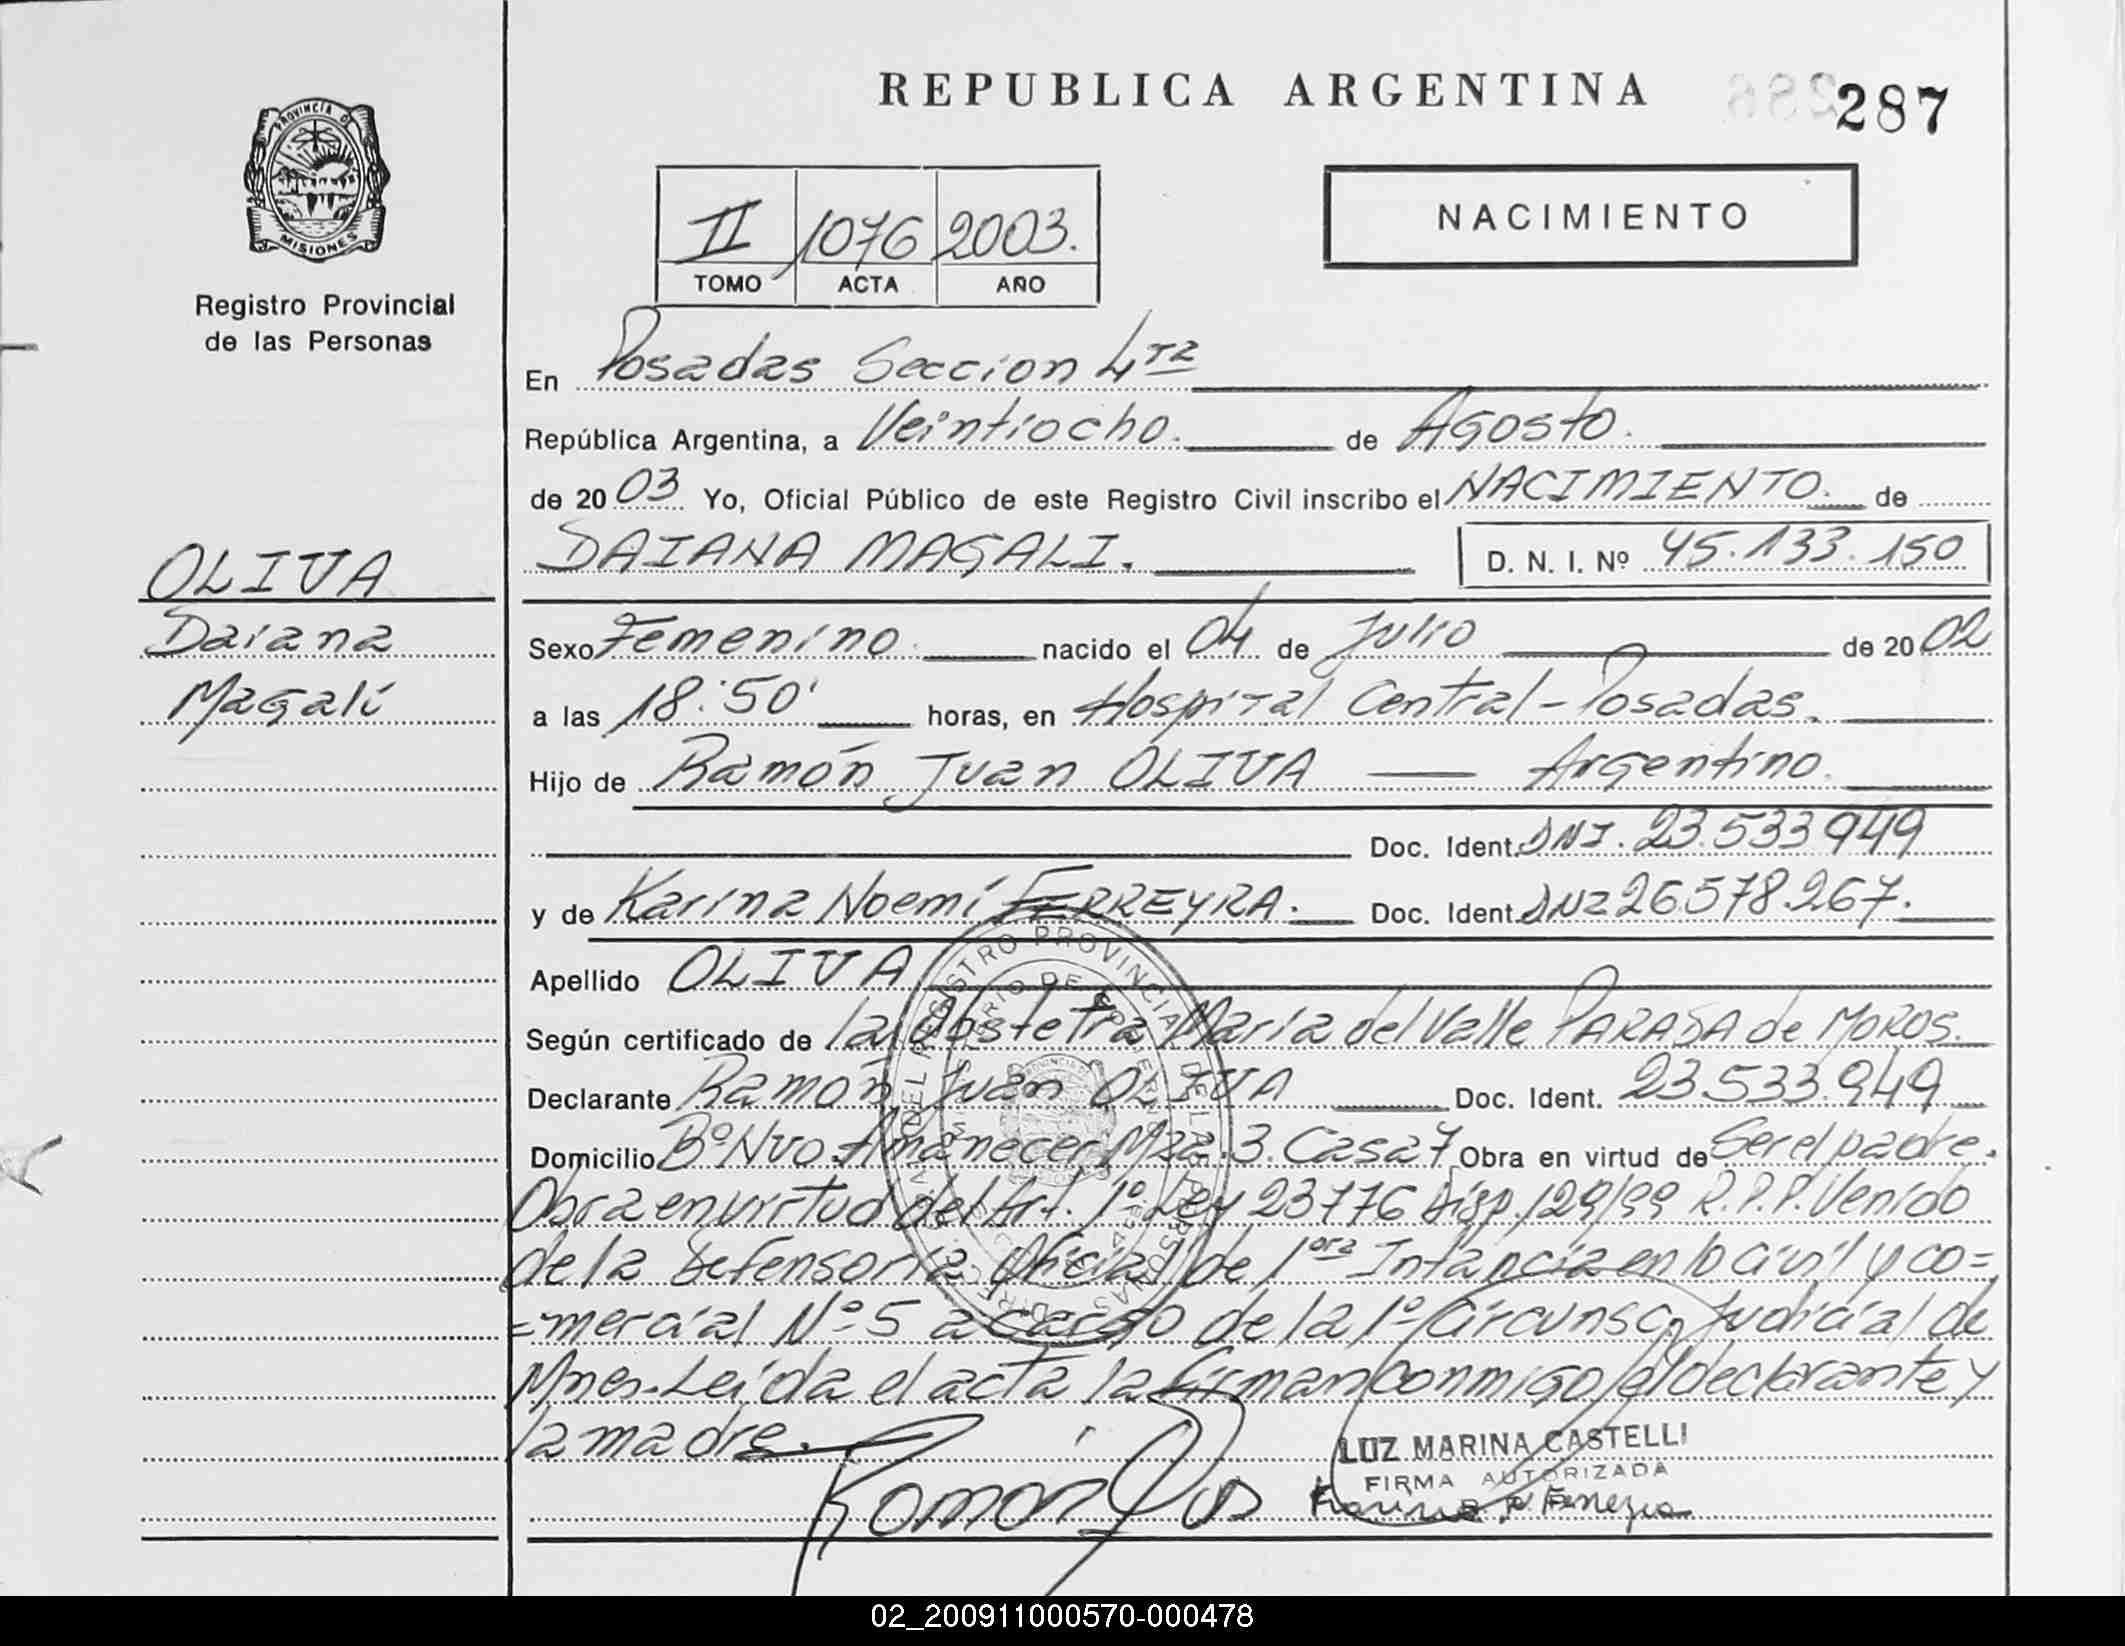 REPUBLICA ARGENTINA
287
PROVINCIA DE
MISIONES
Registro Provincial
de las Personas
II 1076 2003.
TOMO ACTA AÑO
NACIMIENTO
En Posadas Seccion 4ta
República Argentina, a Veintiocho. de Agosto.
de 2003 Yo, Oficial Público de este Registro Civil inscribo el NACIMIENTO. de
DAIANA MAGALI. D. N. I. Nº 45.133.150
OLIVA
Daiana
Magalí
Sexo Femenino nacido el 04 de Julio de 2002
a las 18:50' horas, en Hospital Central - Posadas.
Hijo de Ramón Juan OLIVA — Argentino.
Doc. Ident. DNI. 23.533.949
y de Karina Noemí FERREYRA. Doc. Ident. DNI 26578.267.
Apellido OLIVA
Según certificado de la Obstetra María del Valle de MOROS.
Declarante Ramón Juan OLIVA Doc. Ident. 23.533.949
Domicilio Bº Nvo. Amanecer Mza. 3. Casa 7 Obra en virtud de Ser el padre.
Obra en virtud del Art. 1º Ley 23776 Disp. 129/99 R.P.P. Venido
de la Defensoria Oficial de 1ora Intancia en lo Civil y co=
=mercial Nº 5 a cargo de la 1º Circunsc. Judicial de
Mnes. Leída el acta la firman conmigo el declarante y
la madre.
LUZ MARINA CASTELLI
FIRMA AUTORIZADA
02_200911000570-000478